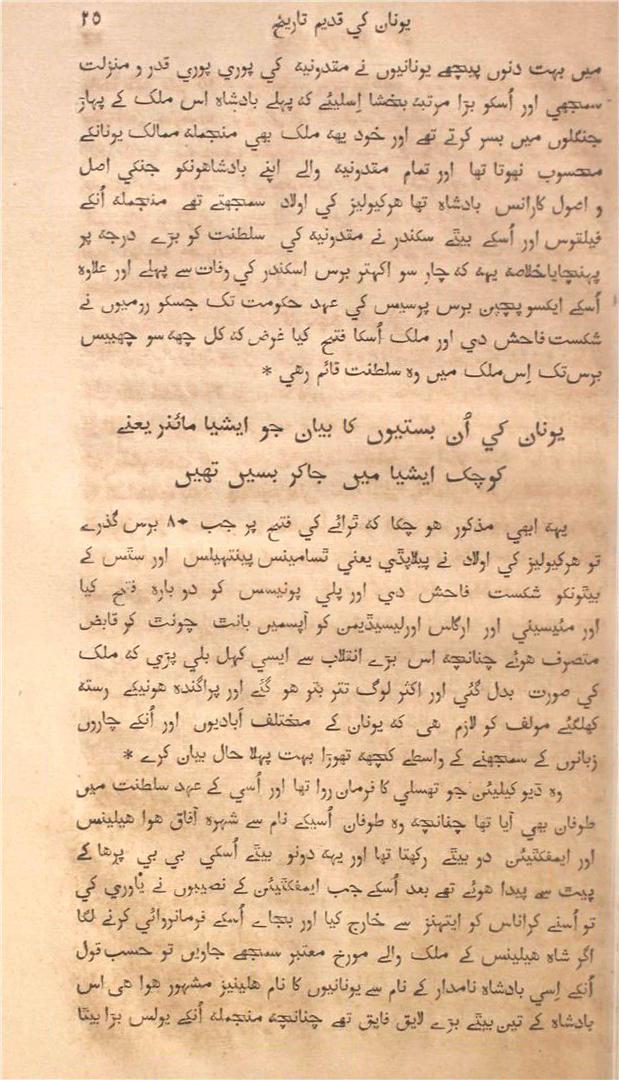 یونان کی قدیم تاریخ ۲۵
میں بہت دنوں پیچھے یونانیوں نے مقدونیہ کی پوری پوری قدر و منزلت
سمجھی اور اُسکو بڑا مرتبہ بخشا اِسلیئے کہ پہلے بادشاہ اس ملک کے پہاڑ
جنگلوں میں بسر کرتے تھے اور خود یہہ ملک بھی منجملہ ممالک یونانکے
محسوب نہوتا تھا اور تمام مقدونیہ والے اپنے بادشاہونکو جنکی اصل
و اصول کارانس بادشاہ تھا ہرکیولیز کی اولاد سمجھتے تھے منجملہ اُنکے
فیلقوس اور اُسکے بیٹے سکندر نے مقدونیہ کی سلطنت کو بڑے درجہ پر
پہنچایا خلاصہ یہہ کہ چار سو اکہتر برس اسکندر کی وفات سے پہلے اور علاوہ
اُسکے ایکسو پچپن برس پرسیس کی عہد حکومت تک جسکو رومیوں نے
شکست فاحش دی اور ملک اُسکا فتح کیا غرض کہ کل چھہ سو چھبیس
برس تک اِس ملک میں وہ سلطنت قائم رہی *
یونان کی اُن بستیوں کا بیان جو ایشیا مائنر یعنے
کوچک ایشیا میں جاکر بسیں تھیں
یہہ ابھی مذکور ہو چکا کہ ٹرائے کی فتح پر جب ۸۰ برس گذرے
تو ہرکیولیز کی اولاد نے پیلاپڈی یعنی تسامینس پینتھیلس اور سٹس کے
بیٹونکو شکست فاحش دی اور پلی پونیسس کو دو بارہ فتح کیا
اور مئیسینی اور ارگاس اور لیسیڈیمن کو آپسمیں بانٹ چونٹ کر قابض
متصرف ہوئے چنانچہ اس بڑے انقلاب سے ایسی کہل بلی پڑی کہ ملک
کی صورت بدل گئی اور اکثر لوگ تتر بتر ہو گئے اور پراگندہ ہونیکے رستہ
کھلگئے مولف کو لازم ہی کہ یونان کے مختلف آبادیوں اور اُنکے چاروں
زبانوں کے سمجھنے کے واسطے کچھہ تھوڑا بہت پہلا حال بیان کرے *
وہ ڈیوکیلیئن جو تھسلی کا فرمان روا تھا اور اُسی کے عہد سلطنت میں
طوفان بھی آیا تھا چنانچہ وہ طوفان اُسیکے نام سے شہرہ آفاق ہوا ہیلینس
اور ایمفکٹیئن دو بیٹے رکھتا تھا اور یہہ دونو بیٹے اُسکی بی بی پرھا کے
پیٹ سے پیدا ہوئے تھے بعد اُسکے جب ایمفکٹیئن کے نصیبوں نے یاوری کی
تو اُسنے کراناس کو ایتھنز سے خارج کیا اور بجاے اُسکے فرمانروائی کرنے لگا
اگر شاہ ہیلینس کے ملک والے مورخ معتبر سمجھے جاویں تو حسب قول
اُنکے اِسی بادشاہ نامدار کے نام سے یونانیوں کا نام ھلینیز مشہور ہوا ھی اس
بادشاہ کے تین بیٹے بڑے لایق فایق تھے چنانچہ منجملہ اُنکے یولس بڑا بیٹا